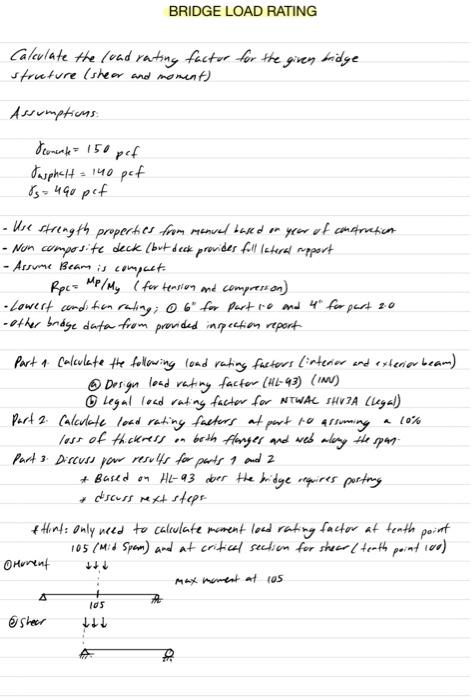 BRIDGE LOAD RATING
Calculate the load rating factor for the given bridge
structure (shear and moment)
Assumptions:
γconcrete = 150 pcf
γasphalt = 140 pcf
γs = 490 pcf
- Use strength properties from manual based on year of construction
- Non composite deck (but deck provides full lateral support
- Assume Beam is compact.
Rpc = Mp/My (for tension and compression)
- Lowest condition rating; ① 6" for Part 1.0 and 4" for part 2.0
- other bridge data from provided inspection report
Part 1. Calculate the following load rating factors (interior and exterior beam)
ⓐ Design load rating factor (HL-93) (INV)
ⓑ Legal load rating factor for NTWAL SHV3A (Legal)
Part 2. Calculate load rating factors at part 1.0 assuming a 10%
loss of thickness on both flanges and web along the span.
Part 3. Discuss your results for parts 1 and 2
* Based on HL-93 does the bridge requires posting
* discuss next steps
* Hint: Only need to calculate moment load rating factor at tenth point
105 (Mid Span) and at critical section for shear (tenth point 100)
① Moment
max moment at 105
105
② Shear